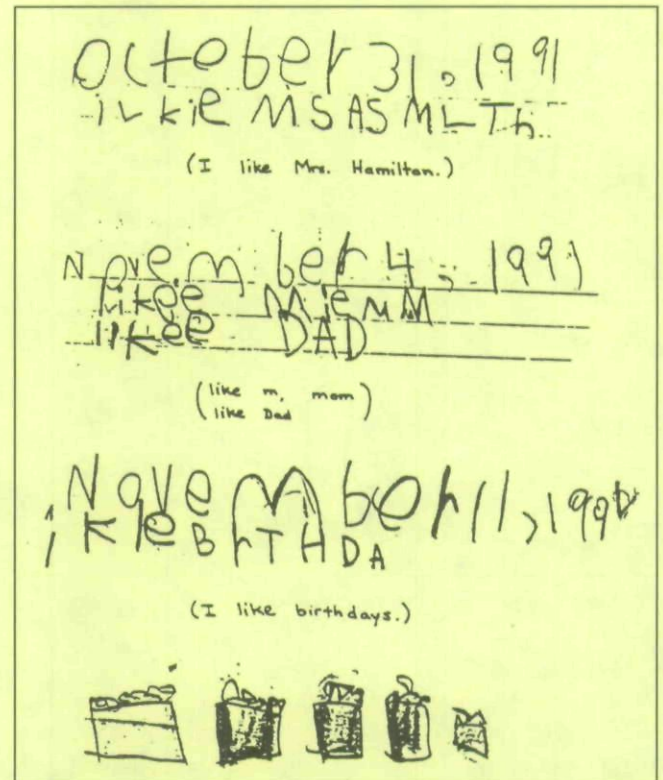 October 31, 1991
iLkie MSASMLTh
(I like Mrs. Hamilton.)
November 4, 1991
likee MiemM
likee DAD
(like m, mom
like Dad)
November 11, 1991
i kleBrTHDA
(I like birthdays.)